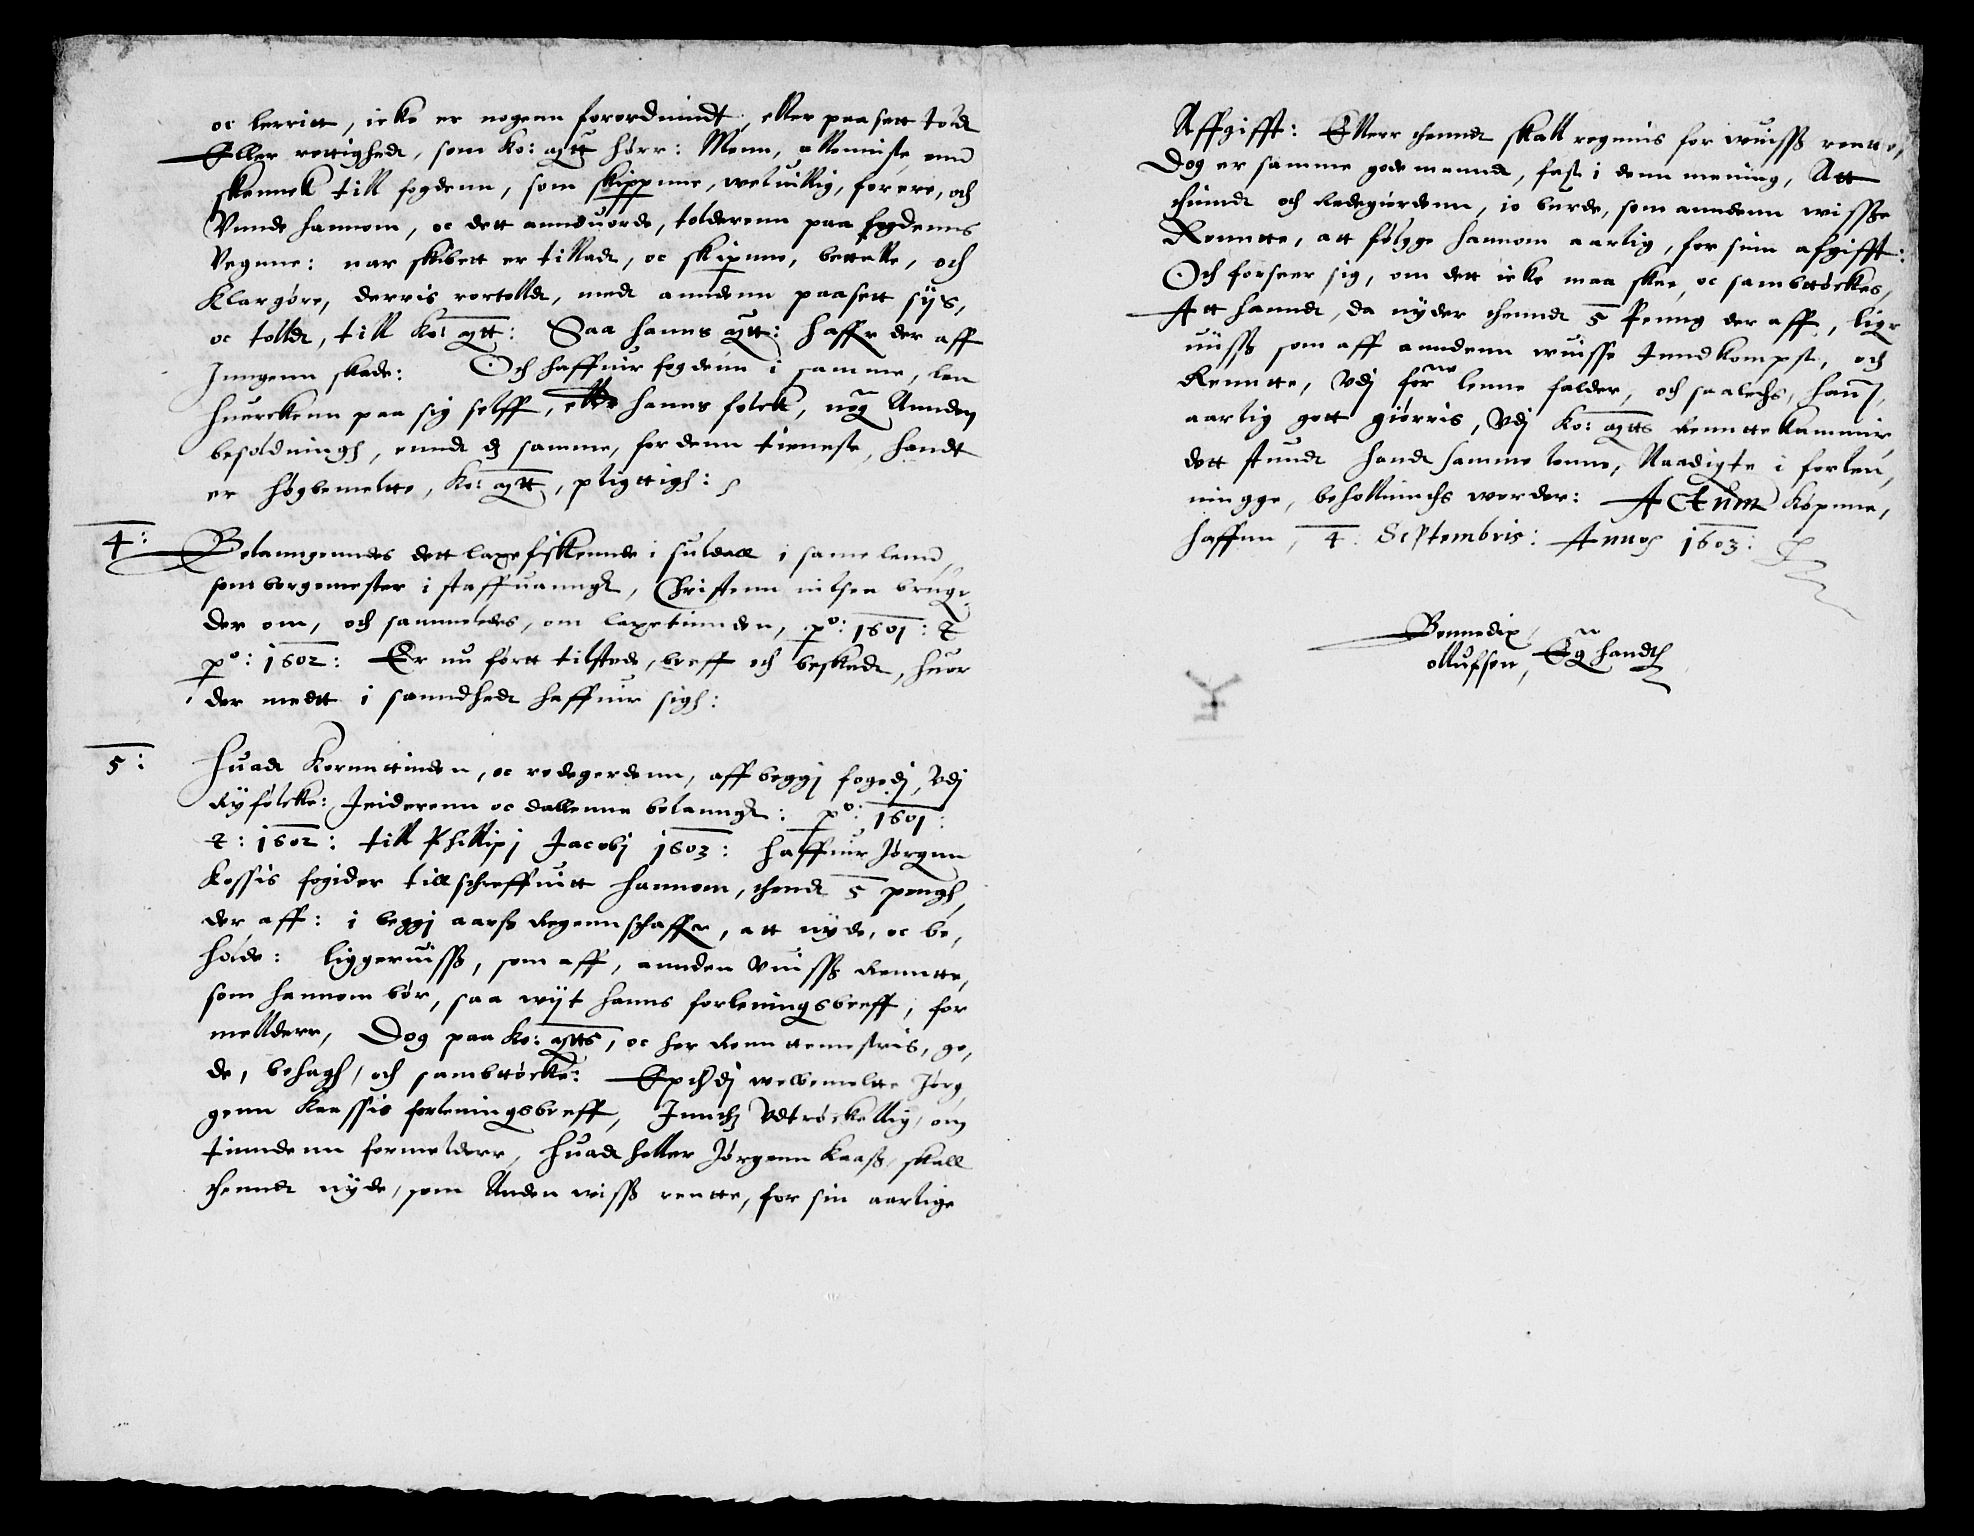 oc lerritt, icke er nogenn forordnindt, eller paa sett told
Eller rettighedt, som Ko: Mtt hörr: Menn, alleniste enn
skennck till fogdenn, som skippenne, weluillig, forere, och
Vnnde hannom, oc dett annduorde, tolderenn paa fogdenns
Vegnne: nar skibett er tilladt, oc skipnne, bettalle, och
Klargöre, derris rortolldt, medt anndenn paasett sijs,
oc tolldt, till Ko: Mtt: Saa hanns Mtt: haffr der aff
Jnngenn skade: Och haffuir fogdenn i samme, len
huerckenn paa sig selff, eller hanns folck, nog Annden
besoldningh, ennd samme, for denn tieneste, handt
er högbemeltte, Ko: Mtt, pligttigh:
4: Belanngenndes dett laxefiskennde i suldall i same lenn
som borgemester i staffuanngr, Christenn nilsen bruger
der om, och sammeledes, om laxetinnden, po: 1601: &
po: 1602: Er nu förtt tilstede, breff och beskedt, huor
der medt i sanndhedt haffuir sigh:
5: Huadt Kornnttinden, oc redegerdenn, aff beggj fogedj, Vdj
Ryfölcke: Jeiderenn oc dallenne belanngr: po: 1601:
&: 1602: till Phillipj Jacobj 1603: haffuir Jörgnn
Kossis fogider tillschreffuitt hannom, thendt 5 pengh,
der aff: i beggj aarss Regennschaffr, att nyde, oc be,
holde: liggeruiss, som aff, annden Vuiss Renntte,
som hannom bör, saa wijt hanns forleningsbreff, for
mellderr, Dog paa Ko: Mtts, oc her Renttemestris, go,
de, behagh, och sambttöcke: Epthdj welbemeltte Jörg
genn Kaassis forleningsbreff, Jnnthz Vdtröckellig, om
tinndenn formelderr, huadt heller Jörgenn Kaass, skall
thenndt nyde, som Anden wiss rentte, for sin aarlige
Affgifft: Ellerr thenndt skall regnnis for wuiss rentte,
Dog er samme gode manndt, fast i denn mening, Att
thinndt och Redegiördenn, io burde, som anndenn wissze
Renntte, att fölgge hannom aarlig, for sinn afgifft:
Och forseer sig, om dett icke maa skee, oc sambttöckes,
Att hanndt, da nyder thenndt 5 Penng der aff, liger
uiss som aff anndenn wuisse Jnndkompst, och
Renntte, Vdj for lenne falder, och saaledes, hannom
aarlig gott giörris, Vdj Ko: Mtts Renttekammir
dett stundt handt samme lenne, Naadigte i forlen,
ningge, behollinndis worder: Actum Köpnne,
haffnn, 4: Septembris: Anno 1603:
Bennedix
Olluffsen, Eg handt